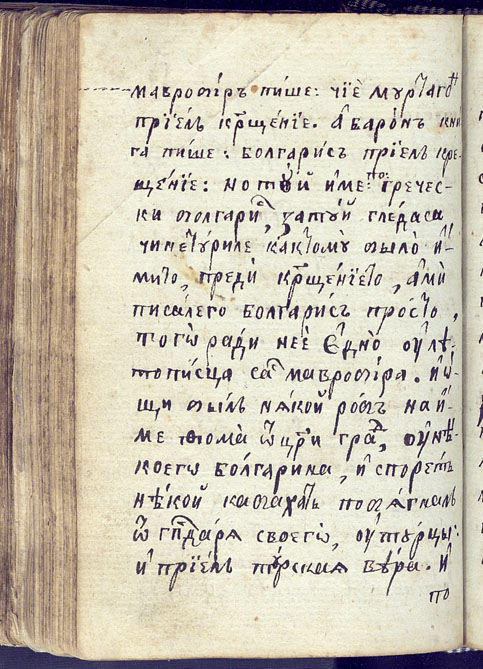 мавробїръ пише: чїе муртагѡⷩ
прїелъ кр҃щенїе. а҆ баронъ кни
га пише: болгарисъ прїелъ кре
щенїе: но тꙋй име по гречес-
ки болгариⷭ, затуй гледаса
какъ томꙋ было и҆-
мито, преди кр҃щенїето, а҆ ми
писалего болгарисъ просто,
тогѡ ради нее едно ᲂу҆ лѣ-
тописца саⷭ мавробїра. и҆ ѡ-
щи былъ някой робъ на и҆-
ме ѳома ѿ цр҃и граⷣ, ᲂу҆ нѣ-
коего болгарина, и҆
нѣкой побягналъ
ѿ гпⷭдаря своего, ᲂу҆ турцы:
и҆ прїелъ тꙋрская вѣра. и҆
по